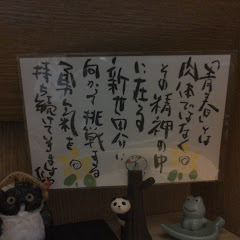 「青春」とは
肉体ではなく
その精神の中
に在る
新世界に
向かって挑戦する
勇気を
持ち続けていきましょう